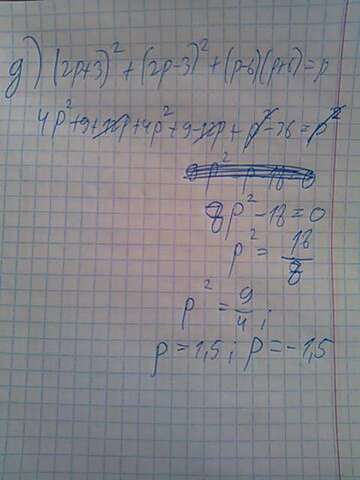 д) (2p+3)² + (2p-3)² + (p-6)(p+6) = p
4p²+9+12p+4p²+9-12p+p²-36=p²
8p²-18=0
p² = 18/8
p² = 9/4 ;
p = 1,5 ; p = -1,5